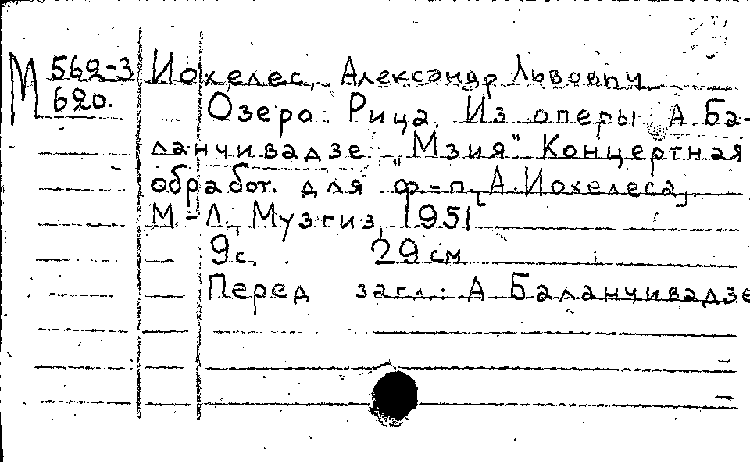 М 562-3 Иохелес, Александр Львович
620. Озеро Рица. Из оперы А. Ба-
ланчивадзе "Мзия" Концертная
обработ. для ф-п. [А. Иохелеса]
М-Л, Музгиз, 1951
9с. 29 см
Перед загл.: А Баланчивадзе